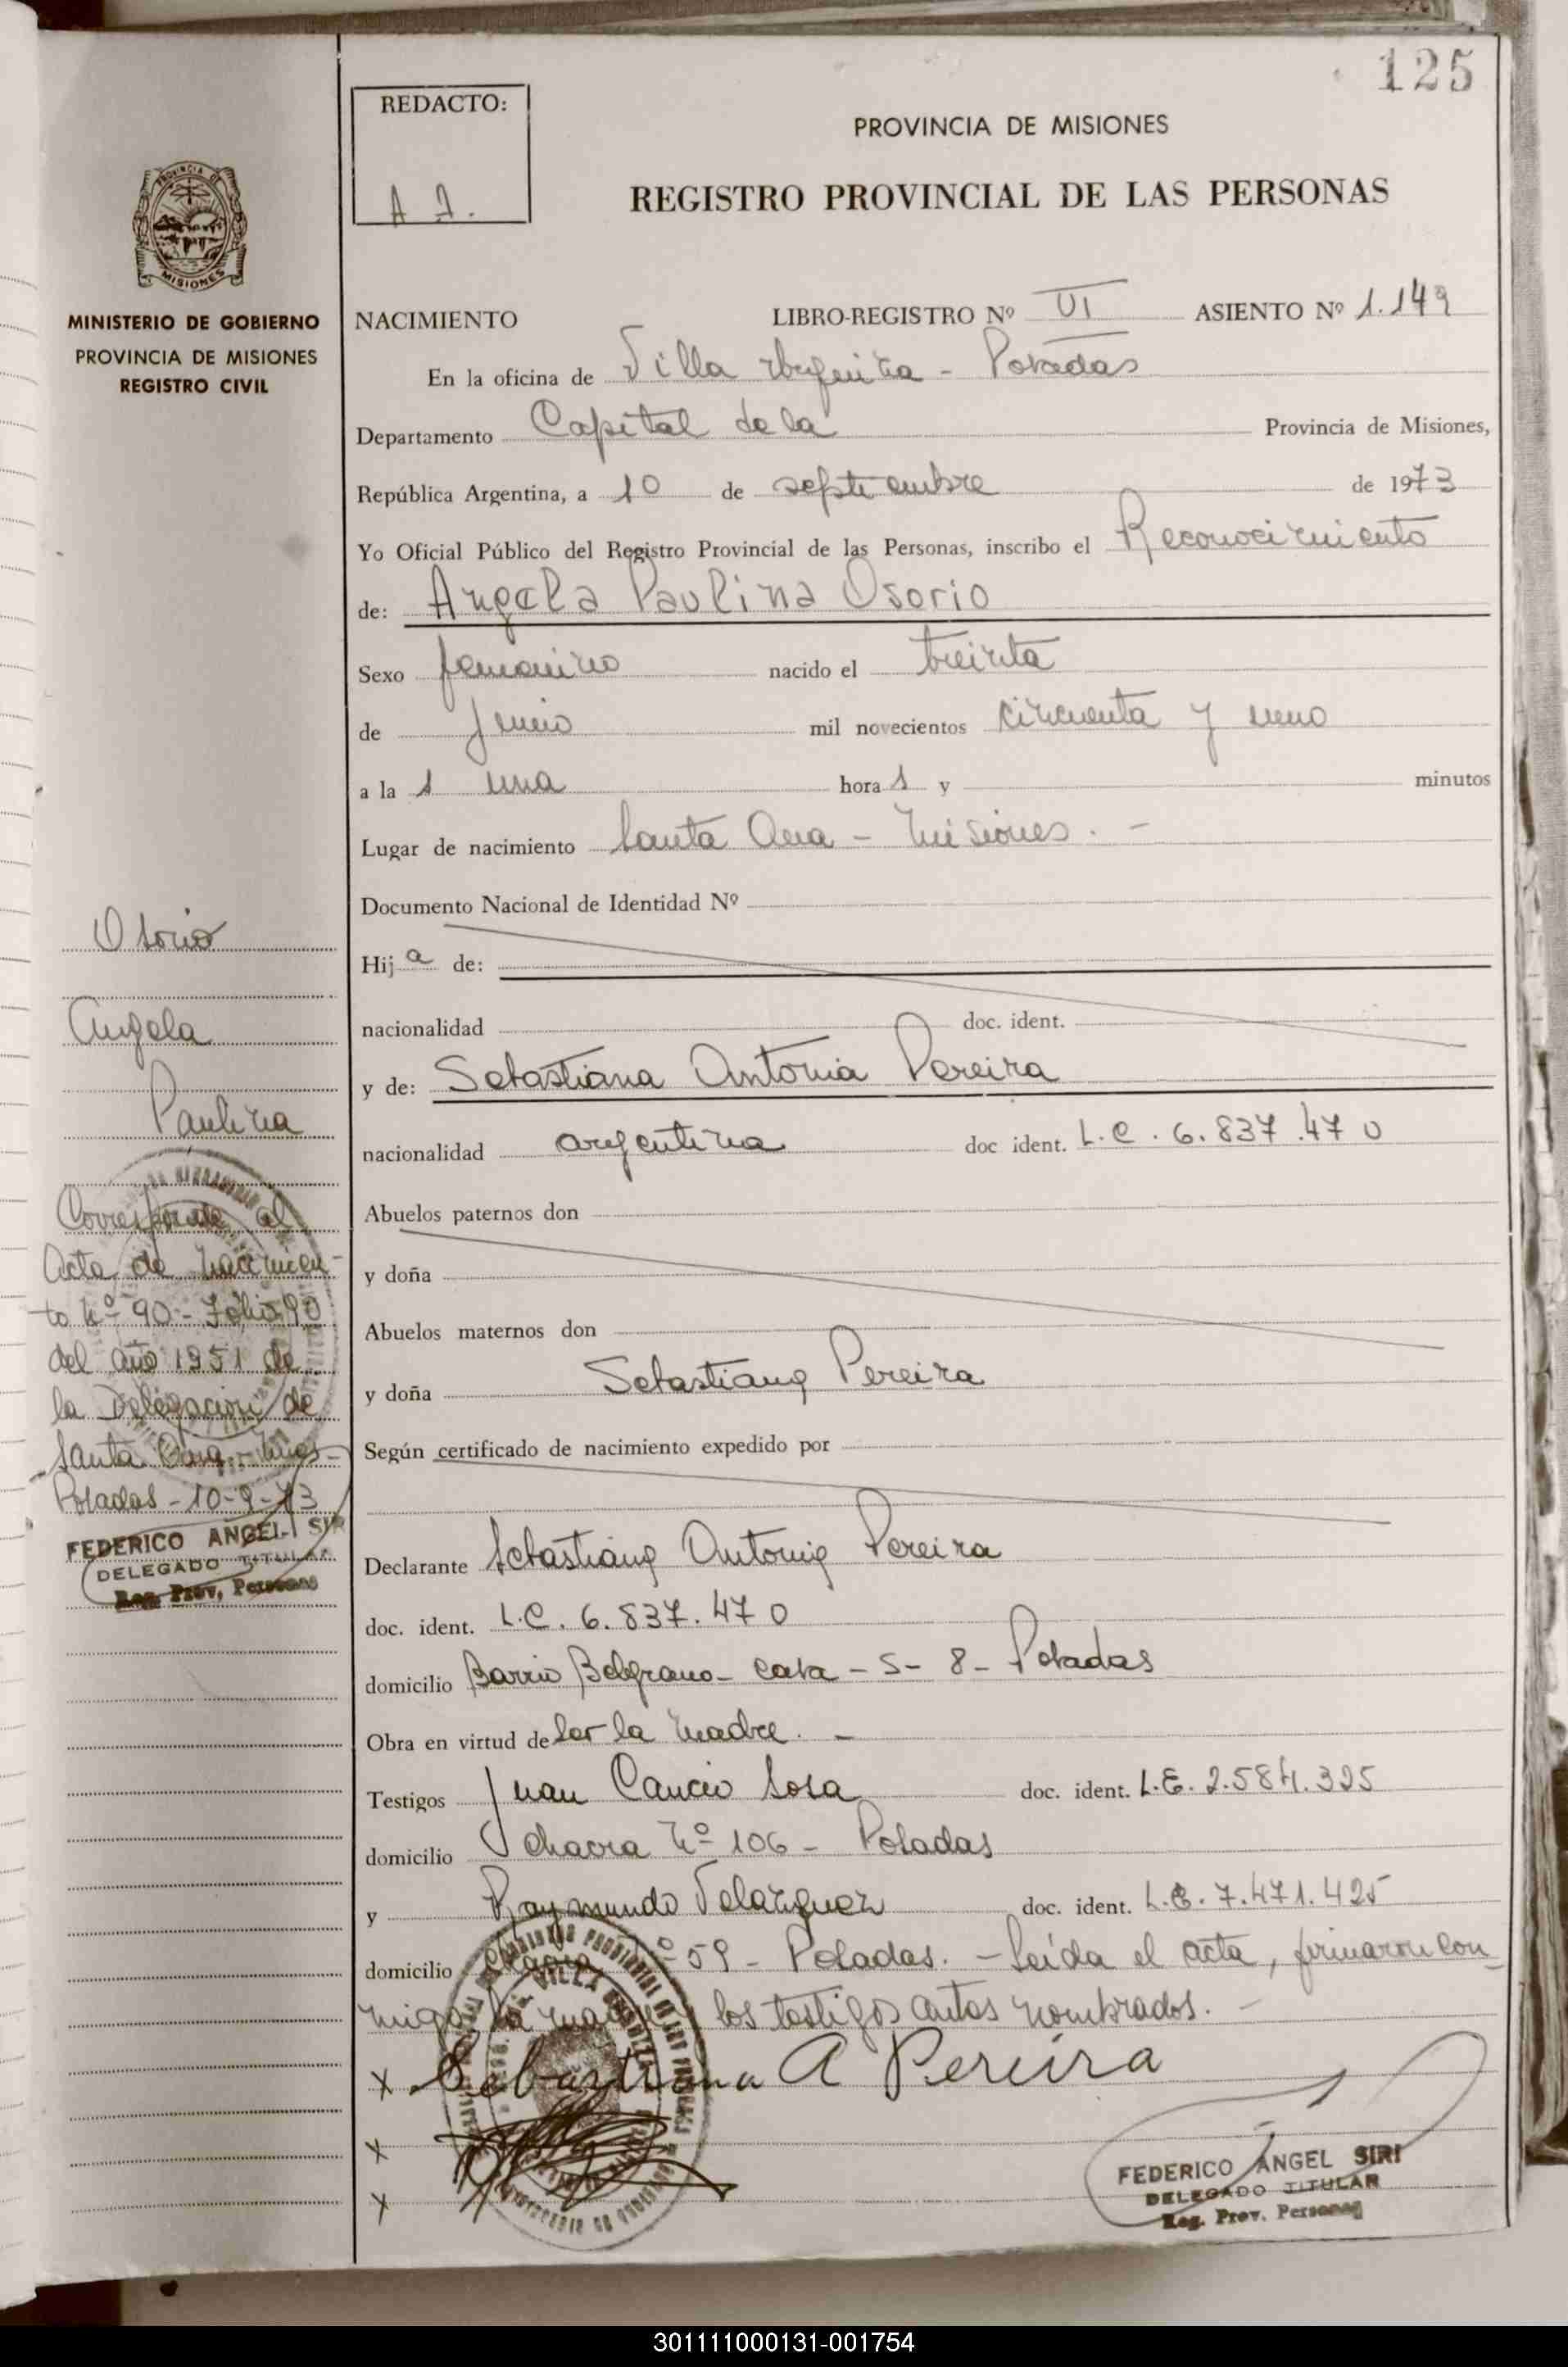 125
REDACTO:
PROVINCIA DE MISIONES
REGISTRO PROVINCIAL DE LAS PERSONAS
MISIONES
MINISTERIO DE GOBIERNO
PROVINCIA DE MISIONES
REGISTRO CIVIL
NACIMIENTO LIBRO-REGISTRO Nº VI ASIENTO Nº 1.149
En la oficina de Villa Urquiza - Posadas
Departamento Capital de la Provincia de Misiones,
República Argentina, a 10 de septiembre de 1973
Yo Oficial Público del Registro Provincial de las Personas, inscribo el Reconocimiento
de: Angela Paulina Osorio
Sexo femenino nacido el treinta
de Junio mil novecientos cincuenta y uno
a la s una hora s y minutos
Lugar de nacimiento Santa Ana - Misiones. -
Documento Nacional de Identidad Nº
Hij a de:
nacionalidad doc. ident.
y de: Sebastiana Antonia Pereira
nacionalidad argentina doc ident. L.C. 6.837.470
Abuelos paternos don
y doña
Abuelos maternos don
y doña Sebastiana Pereira
Según certificado de nacimiento expedido por
Declarante Sebastiana Antonia Pereira
doc. ident. L.C. 6.837.470
domicilio Barrio Belgrano - casa - S - 8 - Posadas
Obra en virtud de ser la madre. -
Testigos Juan Cancio Sosa doc. ident. L.E. 2.584.325
domicilio chacra Nº 106 - Posadas
y Raymundo Velazquez doc. ident. L.E. 7.471.425
domicilio Chacra º 59 - Posadas. - Leida el acta, firmaron con
migo la madre los testigos antes nombrados. -
x Sebastiana A Pereira
x
x
FEDERICO ANGEL SIRI
DELEGADO TITULAR
Reg. Prov. Personas
Osorio
Angela
Paulina
Corresponde al
Acta de nacimien-
to Nº 90 - Folio 90
del año 1951 de
la Delegacion de
Santa Ana - Mnes -
Posadas - 10-9-73
FEDERICO ANGEL SIRI
DELEGADO TITULAR
Reg. Prov. Personas
301111000131-001754